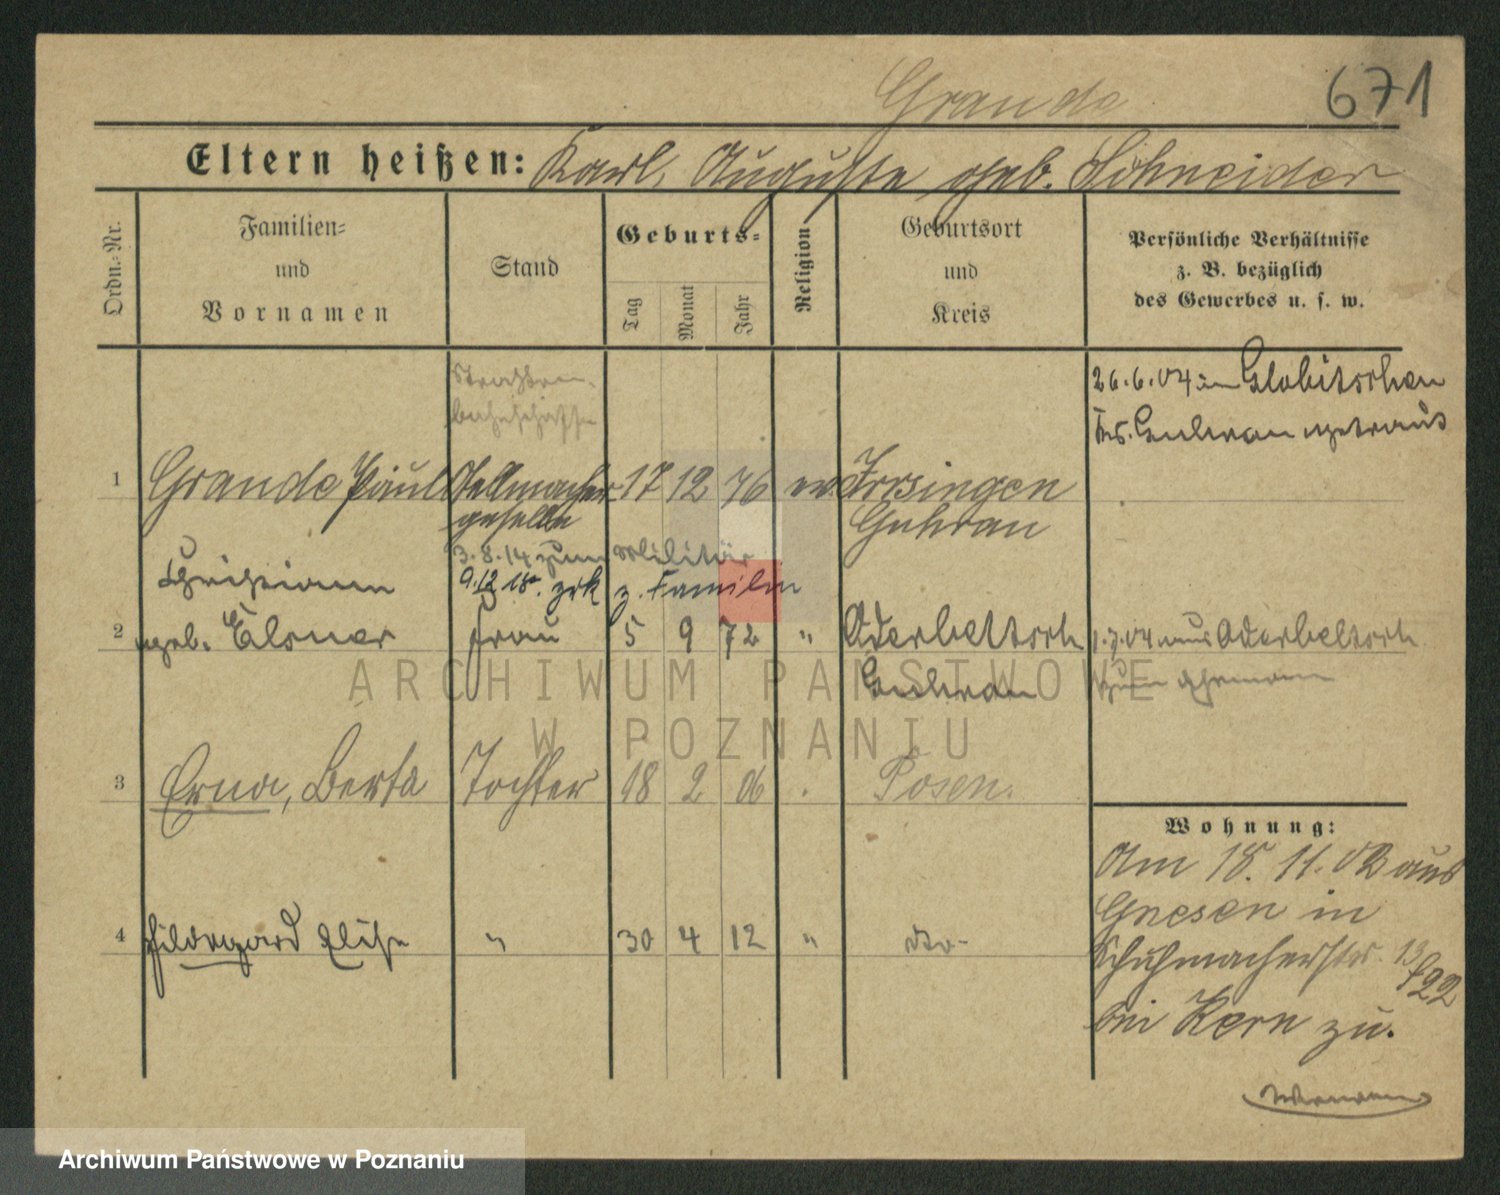 Grande
671
Eltern heißen: Karl, Auguste geb. Schneider
Ordn.-Nr.
Familien-
und
Vornamen
Stand
Geburts-
Tag
Monat
Jahr
Religion
Geburtsort
und
Kreis
Persönliche Verhältnisse
z. B. bezüglich
des Gewerbes u. s. w.
26.6.04 in Globitschen
Krs. Guhrau getraut
1 Grande Paul Stellmacher 17 12 76 ev Irrsingen
geselle Guhrau
3.8.14 zum Militär
9.12 18. zrk z. Familie
Christiane
2 geb. Elsner Frau 5 9 72 " Oderbeltsch 1.7.04 aus Oderbeltsch
Guhrau zum Ehemann
3 Erna, Berta Tochter 18 2 06 . Posen.
Wohnung:
Am 18. 11. 02 aus
Gnesen in
4 Hildegard Elise " 30 4 12 " do-
Schuhmacherstr. 13
bei Kern zu.
ARCHIWUM PAŃSTWOWE
W POZNANIU
Archiwum Państwowe w Poznaniu